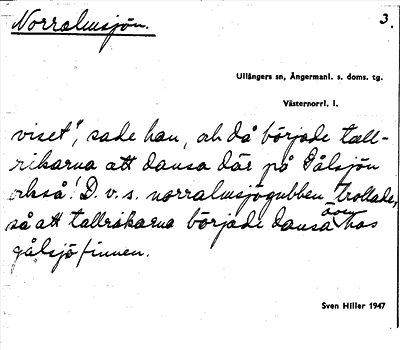 Norralmsjön.
3.
Ullångers sn, Ångermanl. s. doms. tg.
Västernorrl. l.
viset", sade han, och då började tall-
rikarna att dansa där på Gålsjön
också! D. v. s. norralmsjögubben trollade,
så att tallrikarna började dansa även hos
gålsjöfinnen.
Sven Hiller 1947